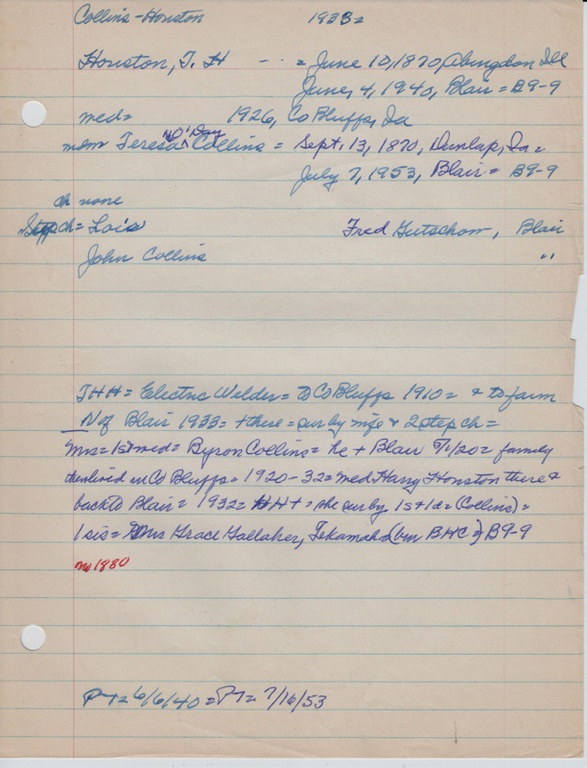 Collins-Houston 1933=
Houston, T. H - - = June 10, 1870, Abingdon Ill
June, 4, 1940, Blair = B9-9
med= 1926, Co Bluffs, Ia
O'Day
mem Teresa Collins = Sept. 13, 1870, Dunlap, Ia=
July 7, 1953, Blair = B9-9
ch none
Step ch= Lois Fred Gutschow, Blair
John Collins "
THH= Electric Welder= to Co Bluffs 1910= & to farm
N of Blair 1933= + there = sur by wife & 2 step ch=
Mrs= 1st med= Byron Collins= he + Blair 5/1/20= family
then lived in Co Bluffs= 1920-32= med Harry Houston there &
back to Blair= 1932= HH+= she sur by 1s+1d= (Collins)=
1 sis= Mrs Grace Gallaher, Tekamah (bur BHC=) B9-9
no 1880
PT= 6/6/40= PT= 7/16/53